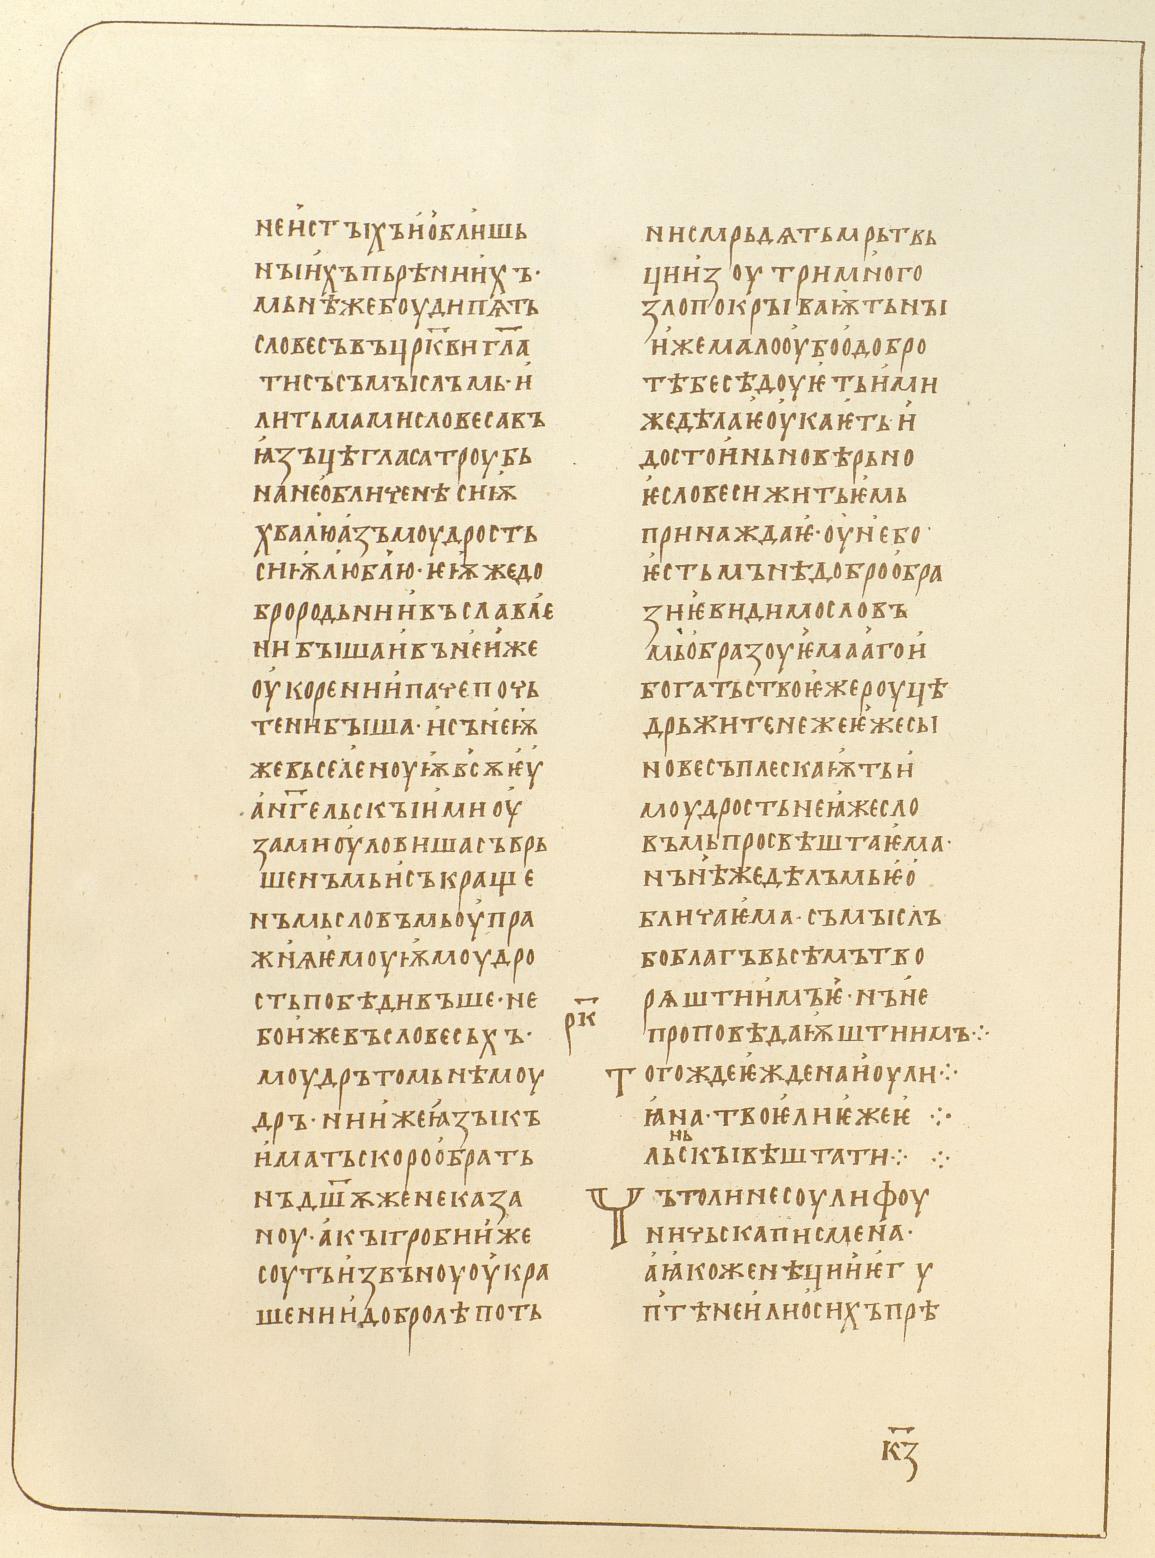 неистъıхъ и облишь
нъıихъ пьрѣниихъ·
мьнѣже боуди пѧть
словесъ въ црк҃ви гл҃а
ти съсъмъıслъмь· и
ли тьмами словеса въ
ꙗзъцѣ гласа троубь
на необличенѣ сиѭ
хвалю азъ моудрость
сиѭ люблю· ѥѭже до
брородьнии въславле
ни бъıша и въ неиже
оукорении паче почь
тени бъıша· и съ неѭ
же вьселеноуѭ вьсѫ ѥу
ан҃гельскъıими оу
зами оуловиша съврь
шенъмь и съкраще
нъмь словъмь оупра
жнꙗѥмоуѭ моудро
сть побѣдивъше· не
бо иже въ словесьхъ·
моудръ то мьнѣ моу
дръ· ни иже ꙗзъıкъ
имать скоро обрать
нъ дш҃ѫ же неказа
ноу· акъı гроби иже
соуть изъвъноу оукра
шении добролѣпоть
ни смрьдѧть мрьтвь
ци изоутри много
зло покръıваѭтьнъı
иже мало оубо о добро
тѣ бесѣдоуѥть ими
же дѣлаѥ оукаѥть и
достоиньно вѣрьно
ѥ словеси житьѥмь
принаждаѥ· оунебо
ѥсть мънѣ добро обра
зниѥ видимо словъ
мь образоуѥмааго и
богатьство ѥже роуцѣ
дрьжите неже ѥже съı
но весъ плескаѭть и
моудрость не ꙗже сло
въмь просвѣштаѥма·
нъ ꙗже дѣлъмь ѥ о
бличаѥма· съмъıслъ
бо благъ вьсѣмъ тво
рѧштиимъ ѥ· нъ не
проповѣдаѭштиимъ·:·
рк҃
Тогожде ѥжде на иоули
ꙗна· твоѥ ли ѥже ѥ
льньскъı вѣштати·:·
Чьто ли не соули фоу
ничьска писмена·
а ꙗкоже нѣции ѥгу
птѣне или о сихъ прѣ
к҃з